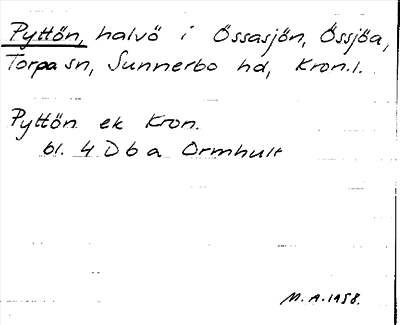 Pyttön, halvö i Össasjön, Össjöa,
Torpa sn, Sunnerbo hd, Kron.l.
Pyttön ek Kron.
bl. 4 D b a Ormhult
M.A. 1958.